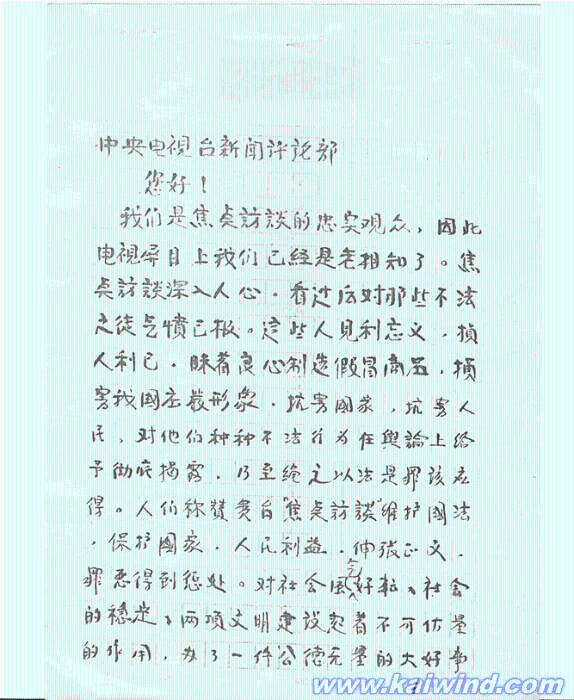 中央电視台新闻评论部
您好！
我们是焦桌訪談的忠实观众，因此
电視屏目上我们已经是老相知了。焦
桌訪談深入人心，看过后对那些不法
之徒气憤已极。这些人見利忘义，損
人利已，昧着良心制造假冒商品，損
害我國庄嚴形象，坑害國家，坑害人
民，对他们种种不法行为在輿論上给
予彻底揭露，乃至绳之以法是罪该应
得。人们称赞贵台“焦桌訪談”维护國法
，保护國家，人民利益，伸张正义，
罪恶得到惩处。对社会風气好転、社会
的穩定、两項文明建设起着不可估量
的作用，办了一件公德无量的大好事
www.kaiwind.com